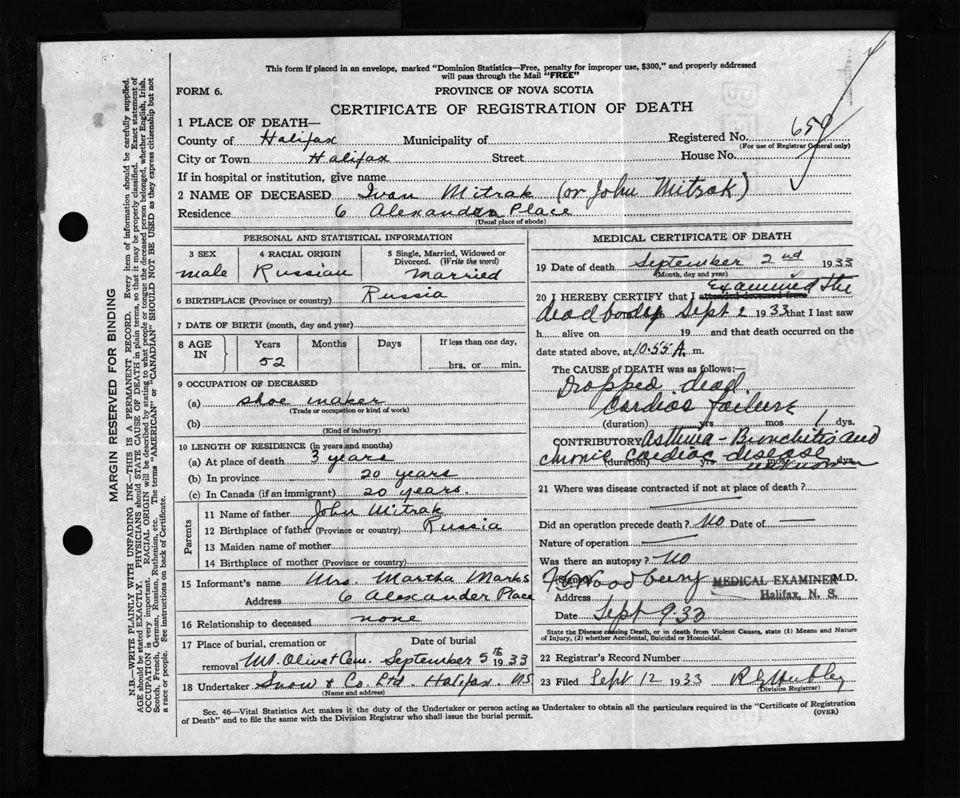 This form if placed in an envelope, marked "Dominion Statistics—Free, penalty for improper use, $300," and properly addressed
will pass through the Mail "FREE"
FORM 6.
PROVINCE OF NOVA SCOTIA
CERTIFICATE OF REGISTRATION OF DEATH
1 PLACE OF DEATH—
County of Halifax Municipality of Registered No. 659
(For use of Registrar General only)
City or Town Halifax Street House No.
If in hospital or institution, give name
2 NAME OF DECEASED Ivan Mitrak (or John Mitrak)
Residence 6 Alexandra Place
(Usual place of abode)
PERSONAL AND STATISTICAL INFORMATION
3 SEX
male
4 RACIAL ORIGIN
Russian
5 Single, Married, Widowed or
Divorced. (Write the word)
Married
6 BIRTHPLACE (Province or country) Russia
7 DATE OF BIRTH (month, day and year)
8 AGE IN
Years Months Days If less than one day,
52 hrs. or min.
9 OCCUPATION OF DECEASED
(a) Shoe maker
(Trade or occupation or kind of work)
(b)
(Kind of industry)
10 LENGTH OF RESIDENCE (in years and months)
(a) At place of death 3 years
(b) In province 20 years
(c) In Canada (if an immigrant) 20 years.
Parents
11 Name of father John Mitrak
12 Birthplace of father (Province or country) Russia
13 Maiden name of mother
14 Birthplace of mother (Province or country)
15 Informant's name Mrs. Martha Marks
Address 6 Alexander Place
16 Relationship to deceased none
17 Place of burial, cremation or Date of burial
removal Mt. Olivet Cem. September 5th 1933
18 Undertaker Snow & Co. Ltd. Halifax. NS
(Name and address)
MEDICAL CERTIFICATE OF DEATH
19 Date of death September 2nd 1933
(Month, day and year)
Examined the
20 I HEREBY CERTIFY that I attended deceased from
dead body Sept 2 1933 that I last saw
h alive on 19 and that death occurred on the
date stated above, at 10.55 A. m.
The CAUSE of DEATH was as follows:—
Dropped dead
Cardiac failure
(duration) yrs mos 1 dys.
CONTRIBUTORY Asthma - Bronchitis and
chronic cardiac disease
(duration) yrs mos dys.
unknown
21 Where was disease contracted if not at place of death?
Did an operation precede death? No Date of —
Nature of operation —
Was there an autopsy? No
(Signed) Woodbury MEDICAL EXAMINER M.D.
Address Halifax, N. S.
Date Sept 9.33
State the Disease causing Death, or in death from Violent Causes, state (1) Means and Nature
of Injury, (2) whether Accidental, Suicidal or Homicidal.
22 Registrar's Record Number
23 Filed Sept 12 1933
(Division Registrar)
Sec. 46—Vital Statistics Act makes it the duty of the Undertaker or person acting as Undertaker to obtain all the particulars required in the "Certificate of Registration
of Death" and to file the same with the Division Registrar who shall issue the burial permit.
(OVER)
MARGIN RESERVED FOR BINDING
N.B.—WRITE PLAINLY WITH UNFADING INK—THIS IS A PERMANENT RECORD. Every item of information should be carefully supplied.
AGE should be stated EXACTLY. PHYSICIANS should STATE CAUSE OF DEATH in plain terms, so that it may be properly classified. Exact statement of
OCCUPATION is very important. RACIAL ORIGIN will be described by stating to what people or tongue the deceased person belonged, whether English, Irish,
Scotch, French, German, Russian, Ruthenian, etc. The terms "AMERICAN" or "CANADIAN" SHOULD NOT BE USED as they express citizenship but not
a race or people. See instructions on back of Certificate.